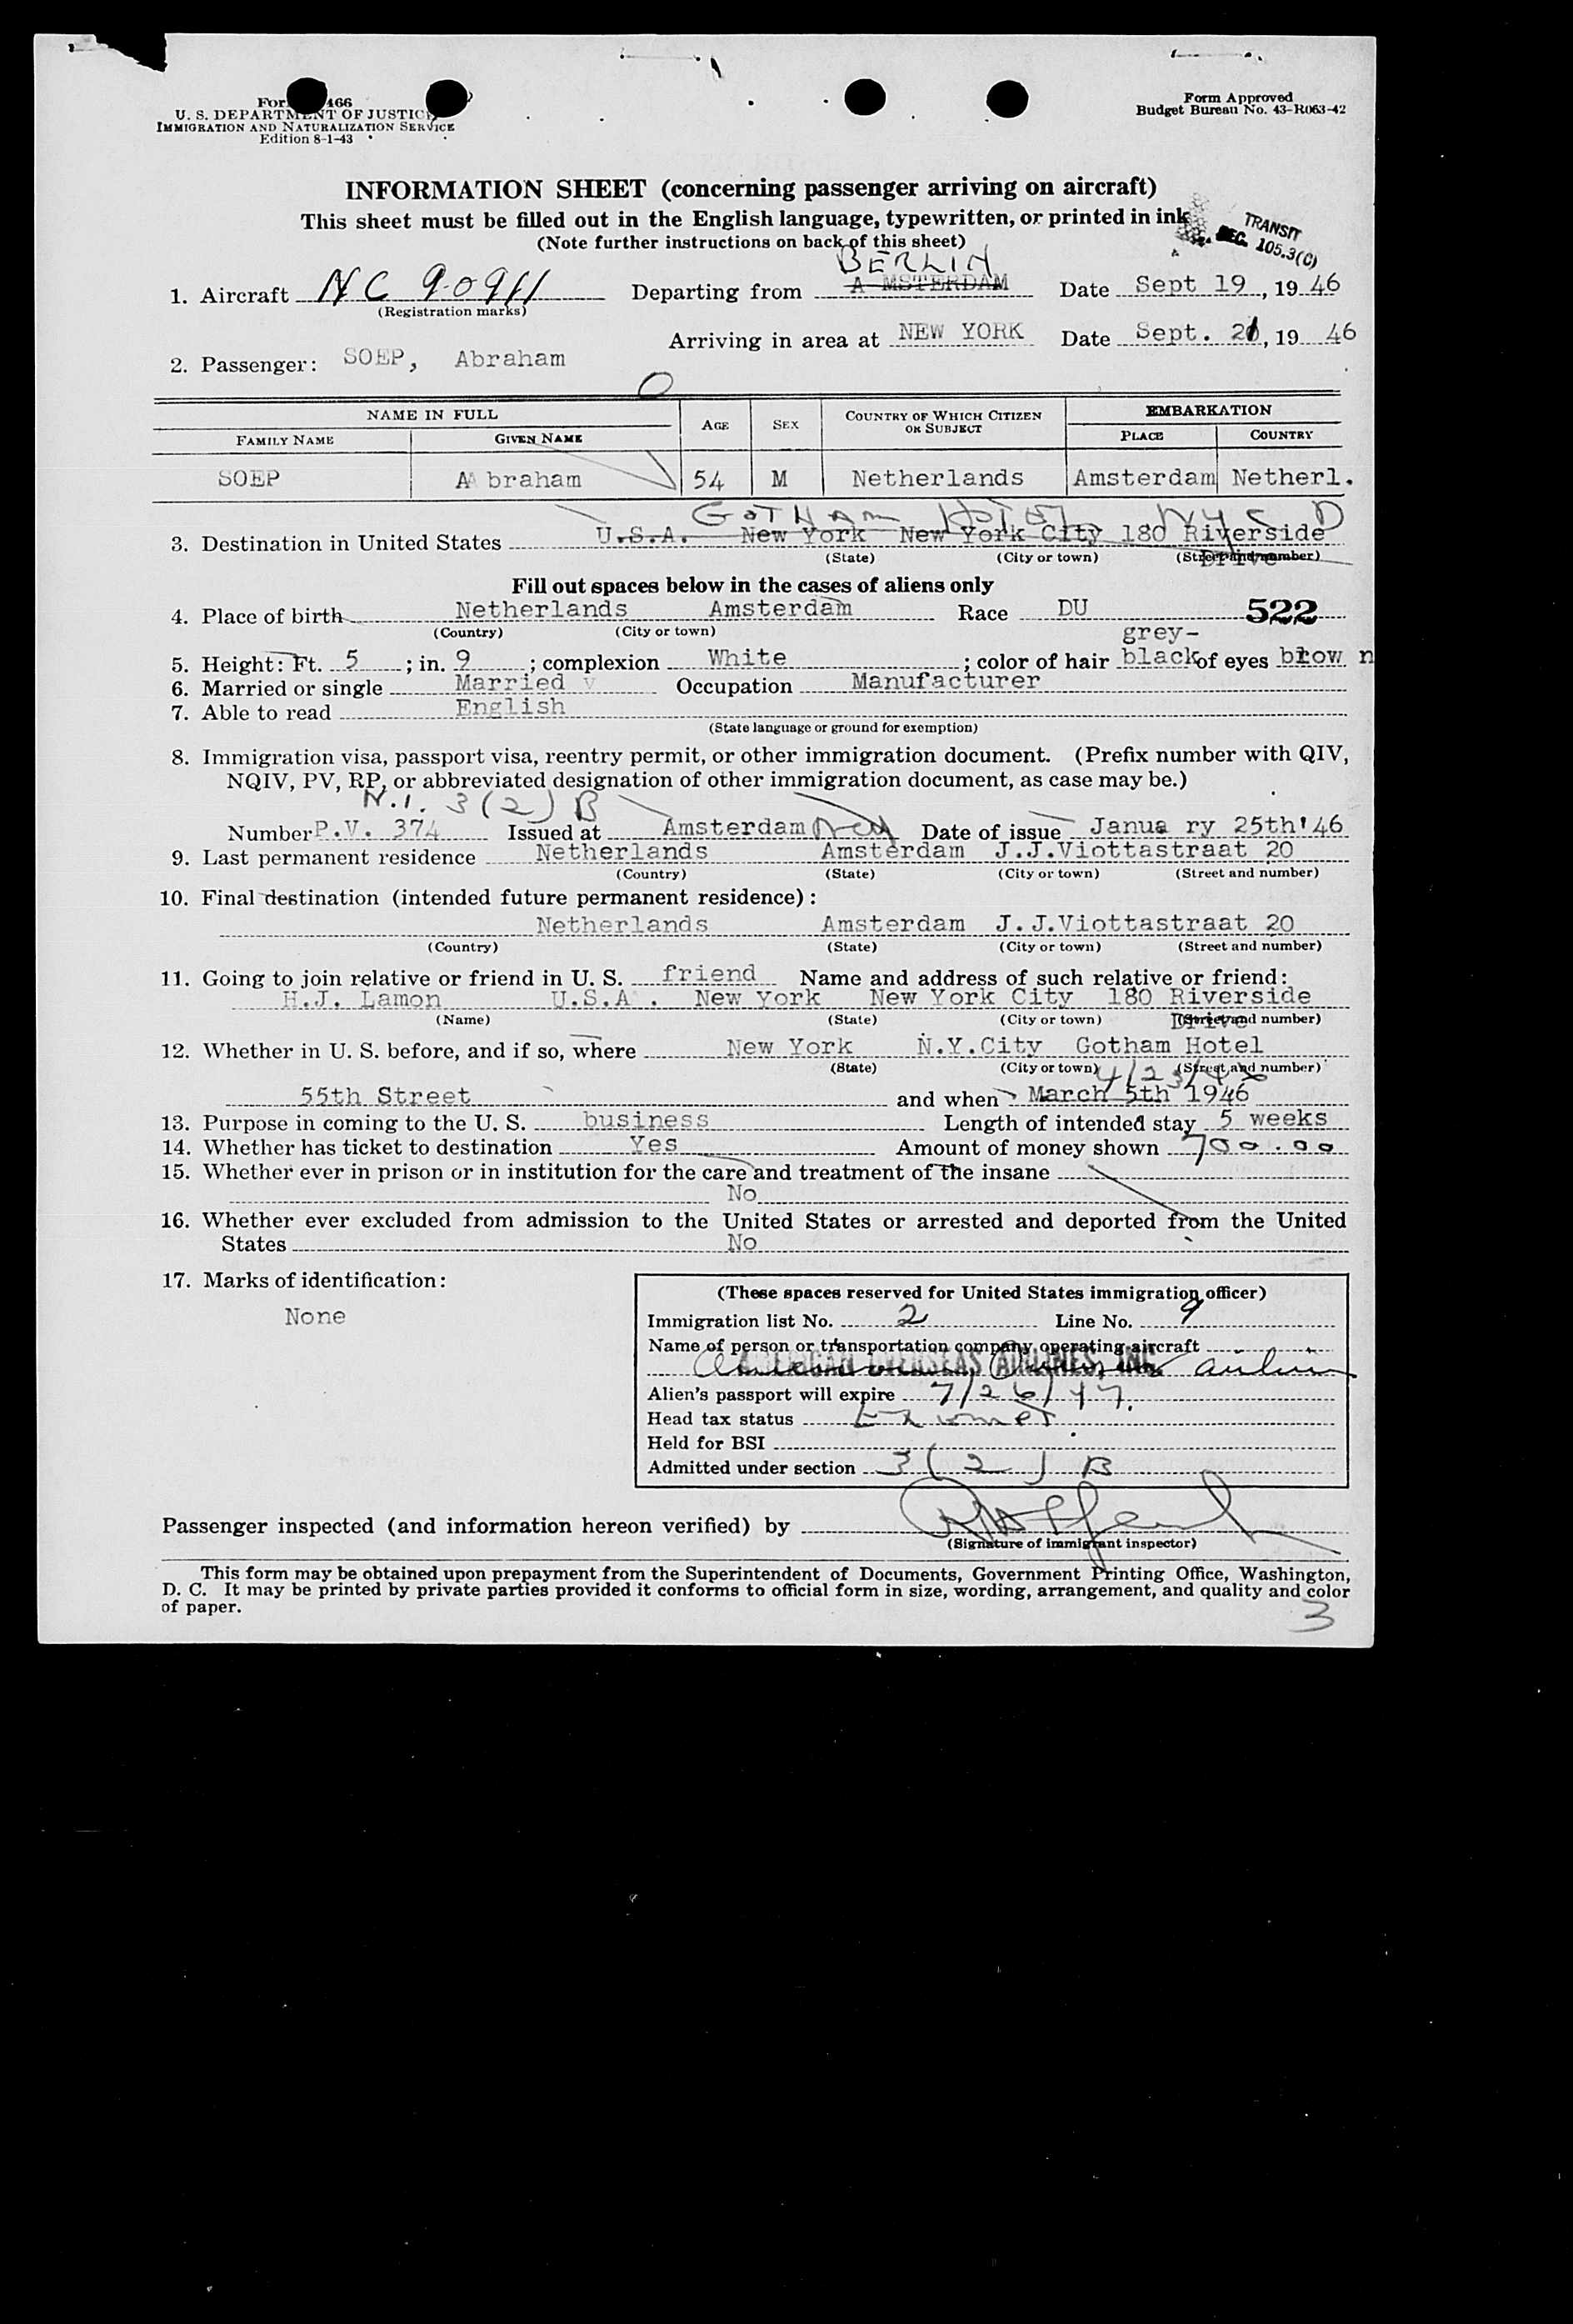 For 466
U. S. DEPARTMENT OF JUSTICE
IMMIGRATION AND NATURALIZATION SERVICE
Edition 8-1-43
Form Approved
Budget Bureau No. 43-R063-42
INFORMATION SHEET (concerning passenger arriving on aircraft)
This sheet must be filled out in the English language, typewritten, or printed in ink
(Note further instructions on back of this sheet)
TRANSIT
SEC. 105.3(C)
BERLIN
1. Aircraft NC 90911 Departing from A MSTERDAM Date Sept 19, 19 46
(Registration marks)
Arriving in area at NEW YORK Date Sept. 21, 19 46
2. Passenger: SOEP, Abraham
NAME IN FULL AGE SEX COUNTRY OF WHICH CITIZEN OR SUBJECT EMBARKATION
FAMILY NAME GIVEN NAME PLACE COUNTRY
SOEP A braham 54 M Netherlands Amsterdam Netherl.
GOTHAM HOTEL NYC
3. Destination in United States U.S.A. New York New York City 180 Riverside
Drive
(State) (City or town) (Street and number)
Fill out spaces below in the cases of aliens only
4. Place of birth Netherlands Amsterdam Race DU 522
(Country) (City or town)
grey-
5. Height: Ft. 5; in. 9; complexion White; color of hair black of eyes brow n
6. Married or single Married Occupation Manufacturer
7. Able to read English
(State language or ground for exemption)
8. Immigration visa, passport visa, reentry permit, or other immigration document. (Prefix number with QIV,
NQIV, PV, RP, or abbreviated designation of other immigration document, as case may be.)
N.I. 3(2) B
Number P.V. 374 Issued at Amsterdam Date of issue Janua ry 25th'46
9. Last permanent residence Netherlands Amsterdam J.J.Viottastraat 20
(Country) (State) (City or town) (Street and number)
10. Final destination (intended future permanent residence):
Netherlands Amsterdam J.J.Viottastraat 20
(Country) (State) (City or town) (Street and number)
11. Going to join relative or friend in U. S. friend Name and address of such relative or friend:
H.J. Lamon U.S.A. New York New York City 180 Riverside
Drive
(Name) (State) (City or town) (Street and number)
12. Whether in U. S. before, and if so, where New York N.Y.City Gotham Hotel
(State) (City or town) (Street and number)
4/23/46
55th Street and when March 5th 1946
13. Purpose in coming to the U. S. business Length of intended stay 5 weeks
14. Whether has ticket to destination Yes Amount of money shown 700.00
15. Whether ever in prison or in institution for the care and treatment of the insane
No
16. Whether ever excluded from admission to the United States or arrested and deported from the United
States No
17. Marks of identification:
None
(These spaces reserved for United States immigration officer)
Immigration list No. 2 Line No. 9
Name of person or transportation company operating aircraft
AMERICAN OVERSEAS AIRLINES, INC.
Alien's passport will expire 7/26/47.
Head tax status Exempt
Held for BSI
Admitted under section 3(2) B
Passenger inspected (and information hereon verified) by
(Signature of immigrant inspector)
This form may be obtained upon prepayment from the Superintendent of Documents, Government Printing Office, Washington,
D. C. It may be printed by private parties provided it conforms to official form in size, wording, arrangement, and quality and color
of paper.
3